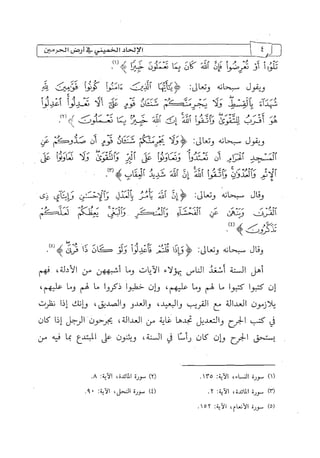 ٤ الإلحاد الخميني في أرض الحرمين
تَلْوُوا أَوْ تُعْرِضُوا فَإِنَّ اللَّهَ كَانَ بِمَا تَعْمَلُونَ خَبِيرًا ﴾(١).
ويقول سبحانه وتعالى: ﴿ يَا أَيُّهَا الَّذِينَ آمَنُوا كُونُوا قَوَّامِينَ لِلَّهِ
شُهَدَاءَ بِالْقِسْطِ وَلَا يَجْرِمَنَّكُمْ شَنَآنُ قَوْمٍ عَلَى أَلَّا تَعْدِلُوا اعْدِلُوا
هُوَ أَقْرَبُ لِلتَّقْوَى وَاتَّقُوا اللَّهَ إِنَّ اللَّهَ خَبِيرٌ بِمَا تَعْمَلُونَ ﴾(٢).
ويقول سبحانه وتعالى: ﴿ وَلَا يَجْرِمَنَّكُمْ شَنَآنُ قَوْمٍ أَن صَدُّوكُمْ عَنِ
الْمَسْجِدِ الْحَرَامِ أَن تَعْتَدُوا وَتَعَاوَنُوا عَلَى الْبِرِّ وَالتَّقْوَى وَلَا تَعَاوَنُوا عَلَى
الْإِثْمِ وَالْعُدْوَانِ وَاتَّقُوا اللَّهَ إِنَّ اللَّهَ شَدِيدُ الْعِقَابِ ﴾(٣).
وقال سبحانه وتعالى: ﴿ إِنَّ اللَّهَ يَأْمُرُ بِالْعَدْلِ وَالْإِحْسَانِ وَإِيتَاءِ ذِي
الْقُرْبَى وَيَنْهَى عَنِ الْفَحْشَاءِ وَالْمُنكَرِ وَالْبَغْيِ يَعِظُكُمْ لَعَلَّكُمْ
تَذَكَّرُونَ ﴾(٤).
وقال سبحانه وتعالى: ﴿ وَإِذَا قُلْتُمْ فَاعْدِلُوا وَلَوْ كَانَ ذَا قُرْبَى ﴾(٥).
أهل السنة أسْعَدُ الناس بهؤلاء الآيات وما أشبههن من الأدلة، فهم
إن كتبوا كتبوا ما لهم وما عليهم، وإن خطبوا ذكروا ما لهم وما عليهم،
يلازمون العدالة مع القريب والبعيد، والعدو والصديق، وإنك إذا نظرت
في كتب الجرح والتعديل تجدها غاية من العدالة، يجرحون الرجل إذا كان
يستحق الجرح وإن كان رأسًا في السنة، ويثنون على المبتدع بما فيه من
(١) سورة النساء، الآية: ١٣٥. (٢) سورة المائدة، الآية: ٨.
(٣) سورة المائدة، الآية: ٢. (٤) سورة النحل، الآية: ٩٠.
(٥) سورة الأنعام، الآية: ١٥٢.